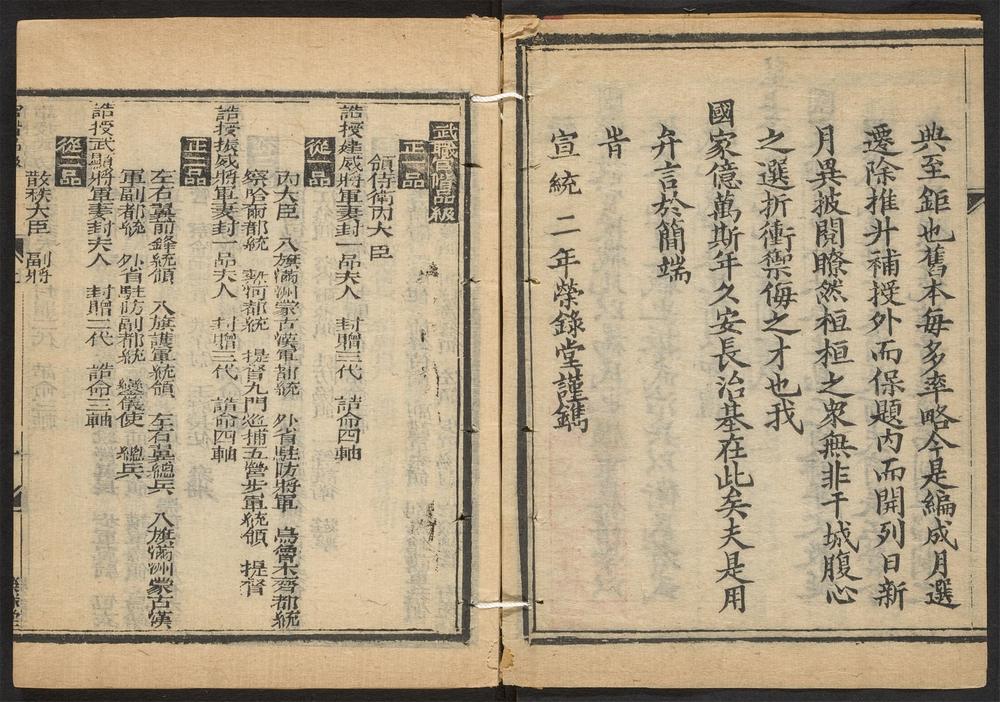 典至鉅也舊本每多率略今是編成月選
遷除推升補授外而保題內而開列日新
月異披閱瞭然桓桓之衆無非干城腹心
之選折衝禦侮之才也我
國家億萬斯年久安長治基在此矣夫是用
弁言於簡端
旹
宣統二年榮錄堂謹鐫
武職官階品級
正一品
領侍衛內大臣
誥授建威將軍妻封一品夫人 封贈三代 誥命四軸
從一品
內大臣 八旗滿洲蒙古漢軍都統 外省駐防將軍 烏魯木齊都統
察哈爾都統 熱河都統 提督九門巡捕五營步軍統領 提督
誥授振威將軍妻封一品夫人 封贈三代 誥命四軸
正二品
左右翼前鋒統領 八旗護軍統領 左右翼總兵 八旗滿洲蒙古漢
軍副都統 外省駐防副都統 鑾儀使 總兵
誥授武顯將軍妻封夫人 封贈二代 誥命三軸
從二品
散秩大臣 副將